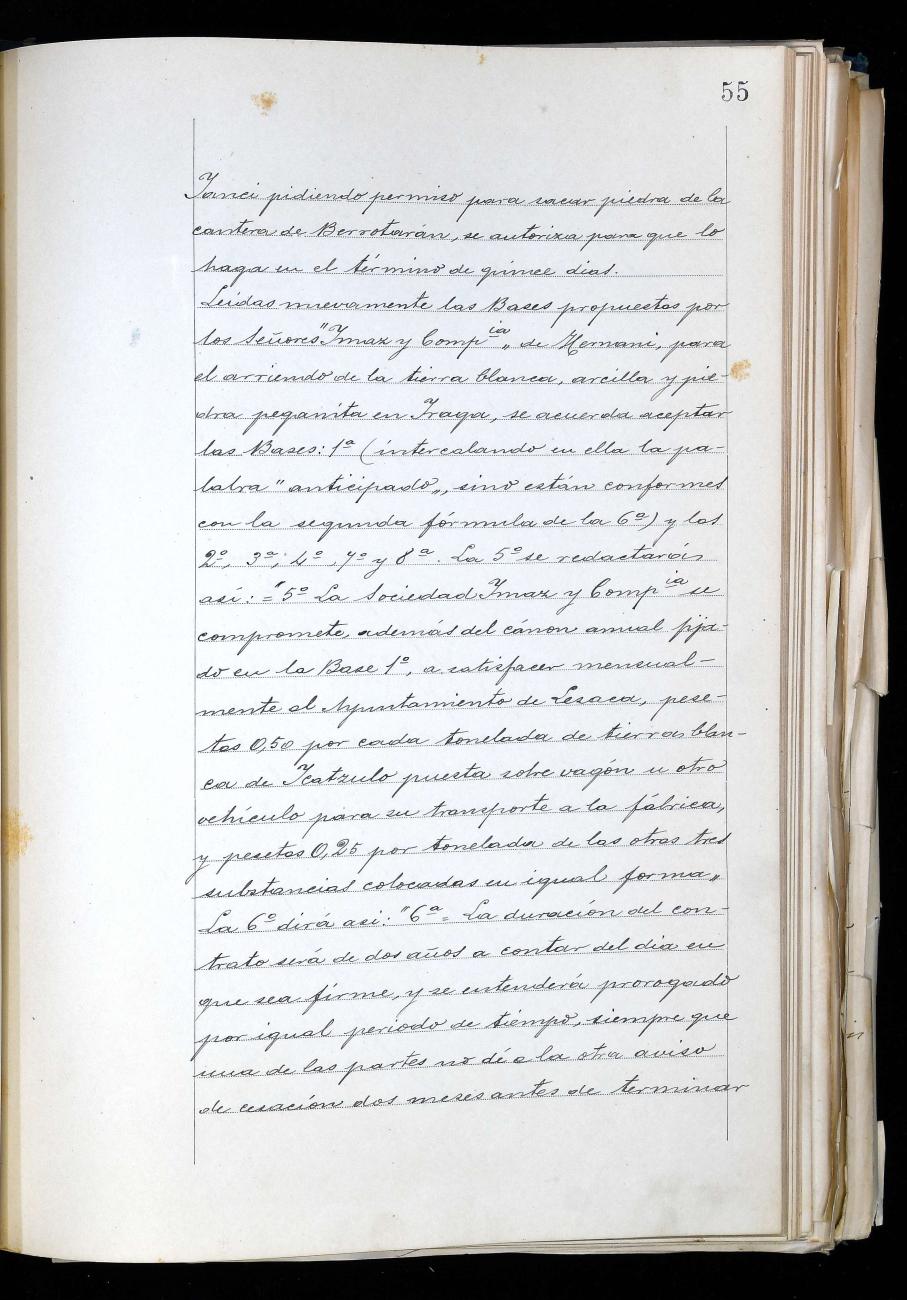 55
Yanci pidiendo permiso para sacar piedra de la
cantera de Berrotarán, se autoriza para que lo
haga en el término de quince dias.
Leidas nuevamente las Bases propuestas por
los Señores "Ymaz y Compia„ de Hernani, para
el arriendo de la tierra blanca, arcilla y pie-
dra peganita en Fraga, se acuerda aceptar
las Bases: 1ª (intercalando en ella la pa-
labra "anticipado„, sino están conformes
con la segunda fórmula de la 6ª) y las
2º, 3ª, 4º, 7º y 8ª. La 5º se redactará
asi: = "5º La Sociedad Ymaz y Compia se
compromete, además del cánon anual fija-
do en la Base 1º, a satisfacer mensual-
mente al Ayuntamiento de Lesaca, pese-
tas 0,50 por cada tonelada de tierras blan-
ca de puesta sobre vagón u otro
vehículo para su transporte a la fábrica,
y pesetas 0,25 por tonelada de las otras tres
substancias colocadas en igual forma„
La 6º dirá asi: "6ª = La duración del con-
trato será de dos años a contar del dia en
que sea firme, y se entenderá prorogado
por igual periodo de tiempo, siempre que
una de las partes no dé a la otra aviso
de cesación dos meses antes de terminar